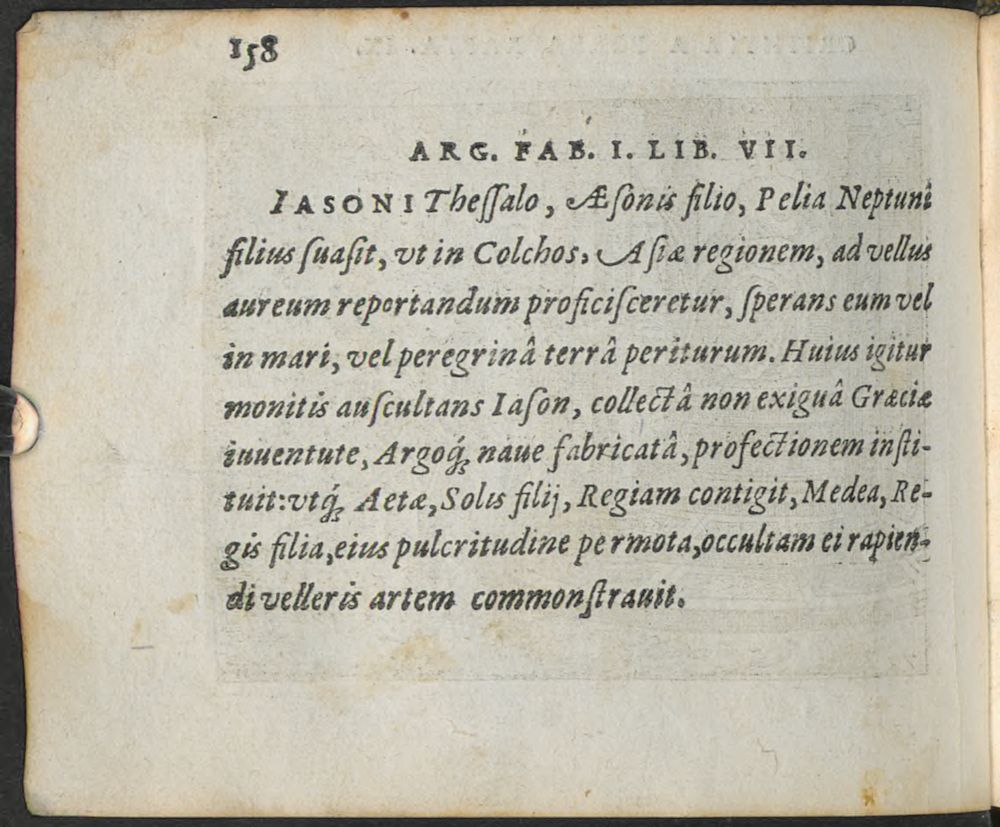 158
ARG. FAB. I. LIB. VII.
IASONI Theſſalo, Æſonis filio, Pelia Neptuni
filius ſuaſit, vt in Colchos, Aſiæ regionem, ad vellus
aureum reportandum proficiſceretur, ſperans eum vel
in mari, vel peregrinâ terrâ periturum. Huius igitur
monitis auſcultans Iaſon, collectâ non exiguâ Græciæ
iuuentute, Argoq́ꝫ naue fabricatâ, profectionem inſti-
tuit: vtq́ꝫ Aetæ, Solis filij, Regiam contigit, Medea, Re-
gis filia, eius pulcritudine permota, occultam ei rapien-
di velleris artem commonſtrauit.